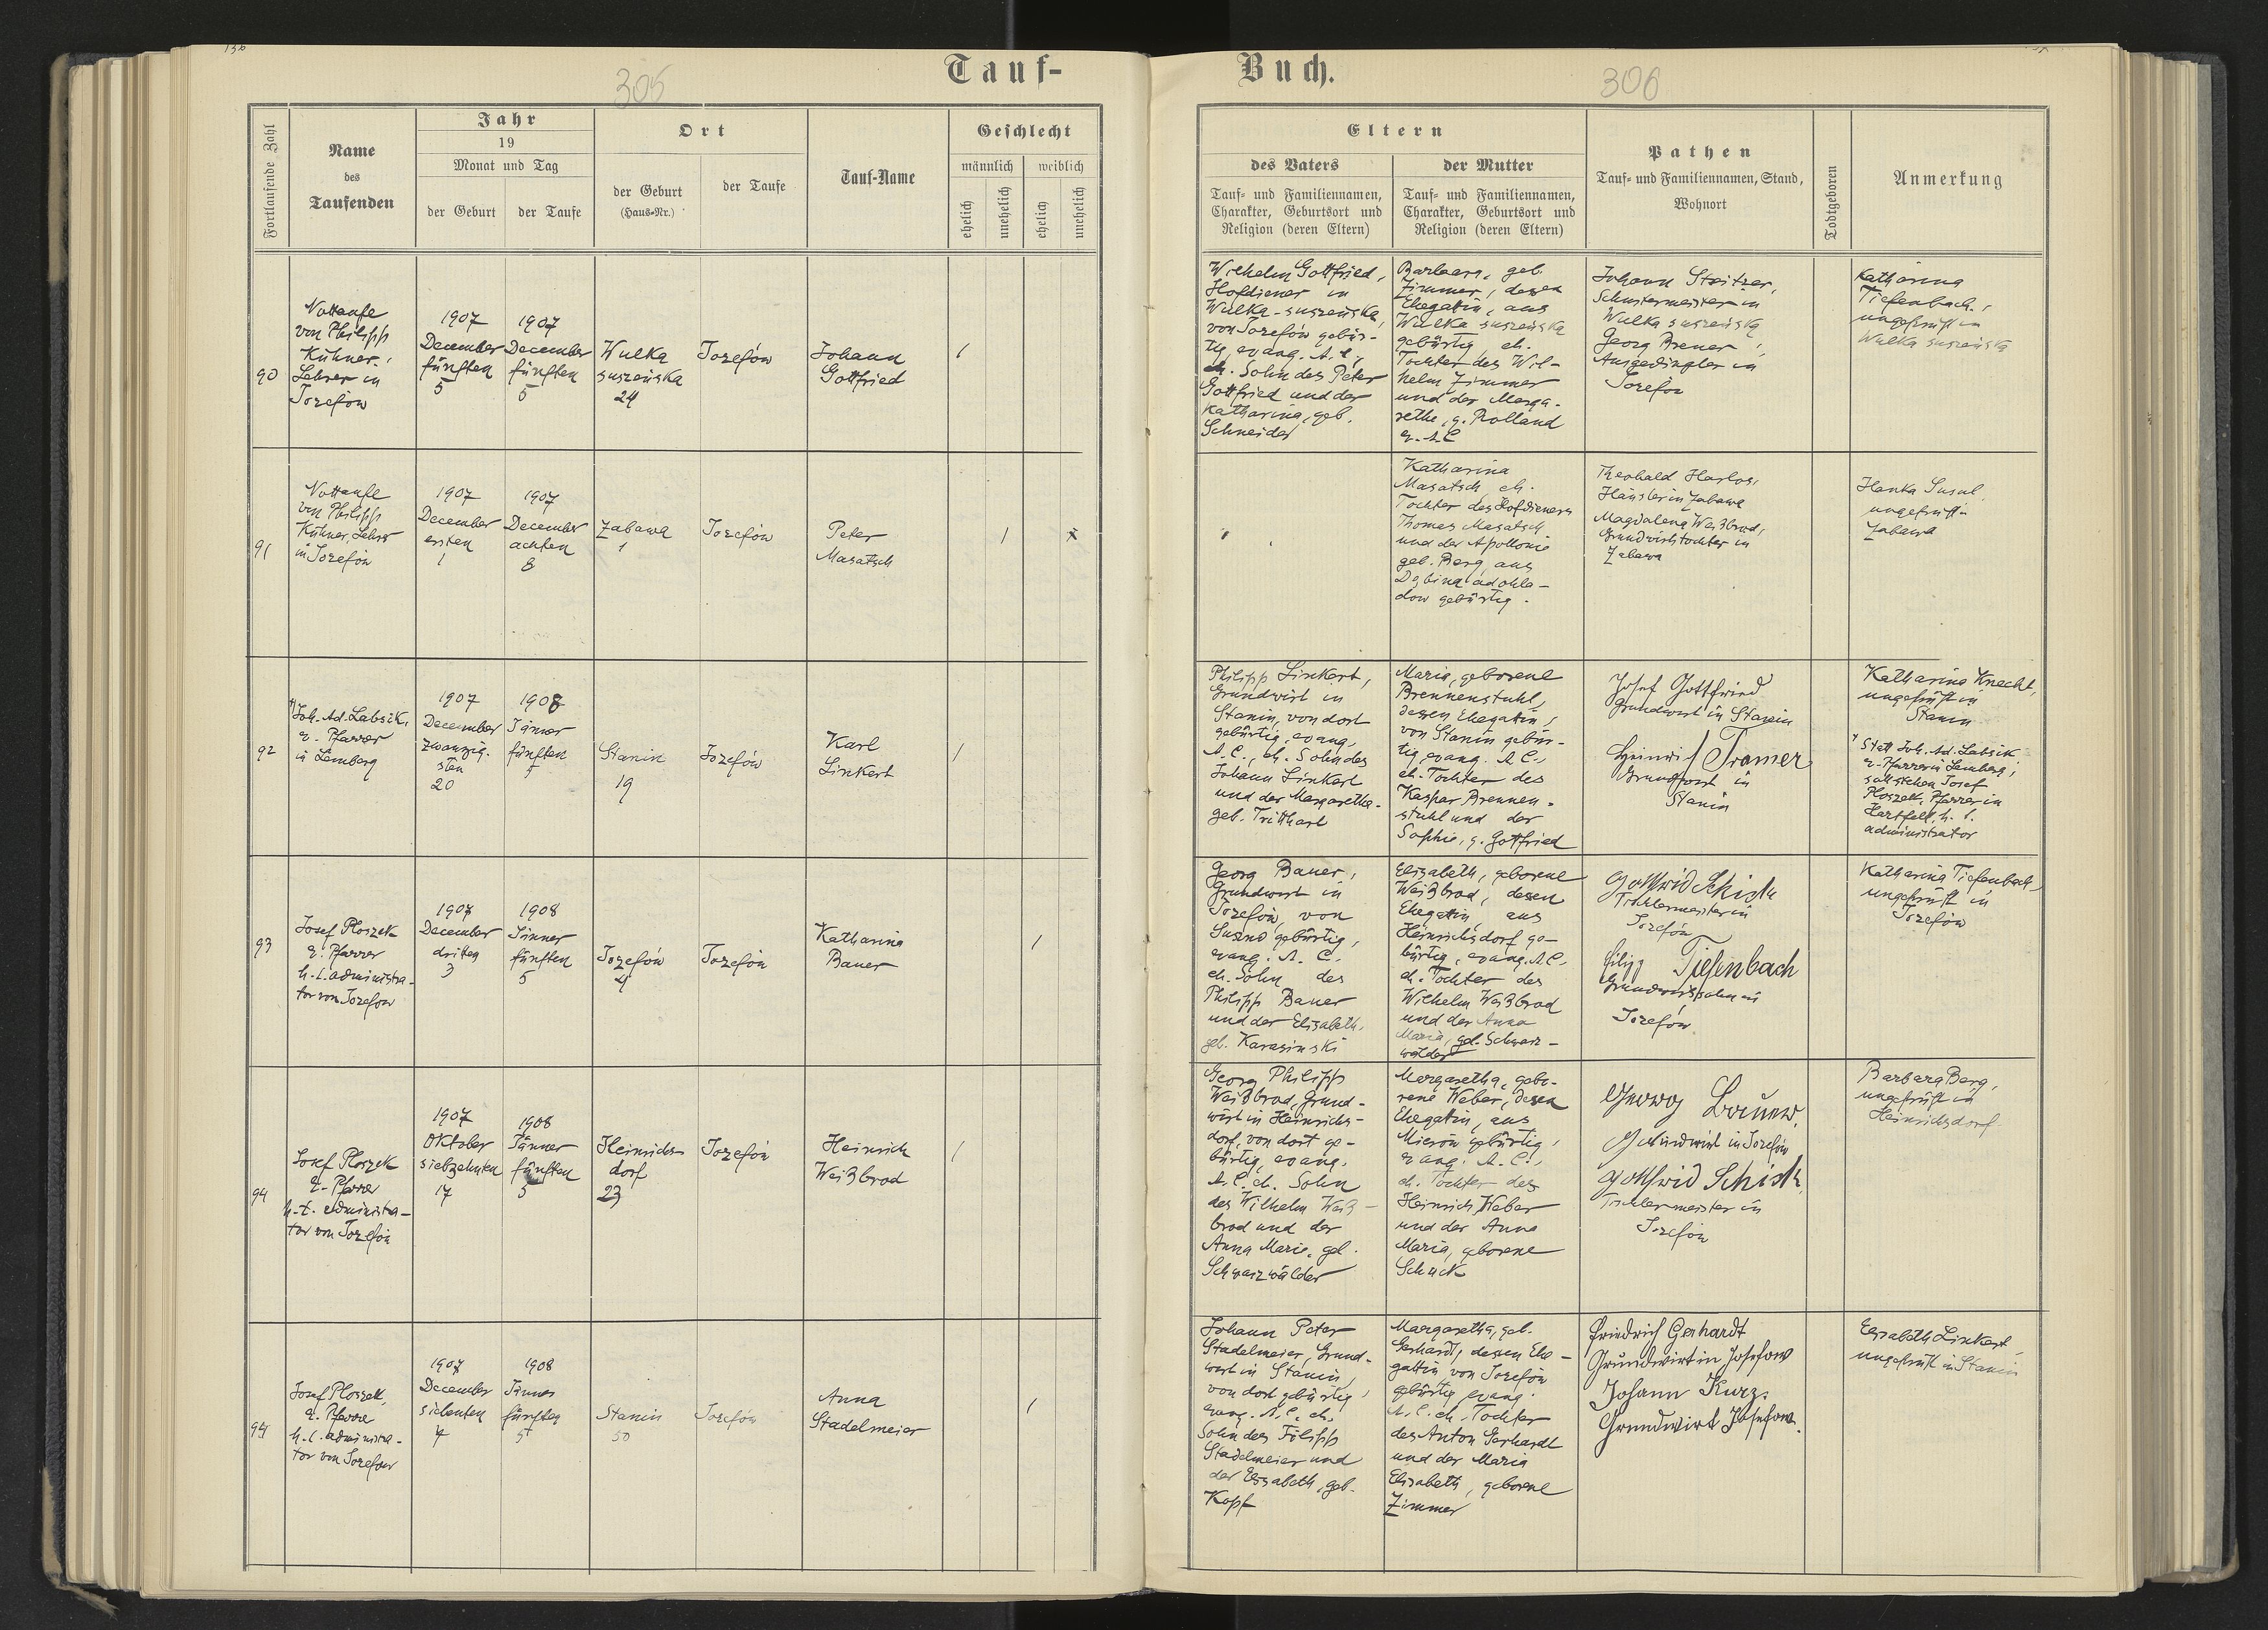 Tauf-
Buch.
305
306
Fortlaufende Zahl
Name
des
Taufenden
Jahr
19
Monat und Tag
der Geburt
der Taufe
Ort
der Geburt
(Haus-Nr.)
der Taufe
Tauf-Name
Geschlecht
männlich
weiblich
ehelich
unehelich
ehelich
unehelich
Eltern
des Vaters
Tauf- und Familiennamen,
Charakter, Geburtsort und
Religion (deren Eltern)
der Mutter
Tauf- und Familiennamen,
Charakter, Geburtsort und
Religion (deren Eltern)
Pathen
Tauf- und Familiennamen, Stand,
Wohnort
Todtgeboren
Anmerkung
90
Nottaufe
von Philipp
Kühner,
Lehrer in
Jozefów
1907
December
fünften
5
1907
December
fünften
5
Wulka
suszeńska
24
Jozefów
Johann
Gottfried
/
Wilhelm Gottfried,
Hofdiener in
Wulka-suszeńska,
von Jozefów gebür-
tig, evang. A. C.,
eh. Sohn des Peter
Gottfried und der
Katharina, geb.
Schneider
Barbara, geb.
Zimmer, dessen
Ehegattin, aus
Wulka suszeńska
gebürtig, eh.
Tochter des Wil-
helm Zimmer
und der Marga-
rethe, g. Rolland
e. A C
Johann Streitzer,
Schustermeister in
Wulka suszeńska
Georg Brener,
Ausgedingler in
Jozefów
Katharina
Tiefenbach,
ungeprüft in
Wulka suszeńska
91
Nottaufe
von Philipp
Kühner, Lehrer
in Jozefów
1907
December
ersten
1
1907
December
achten
8
Zabawa
1
Jozefów
Peter
Masatsch
/
x
Katharina
Masatsch, eh.
Tochter des Hofdieners
Thomas Masatsch
und der Apollonie
geb. Berg, aus
gebürtig.
Theobald Harlos,
Häusler in Zabawa
Magdalena Weißbrod,
Grundwirtstochter in
Zabawa
Hanka
ungeprüft in
Zabawa
92
*) Joh. Ad. Labsik,
e. Pfarrer
in Lemberg
1907
December
zwanzig-
sten
20
1908
Jänner
fünften
5
Stanin
19
Jozefów
Karl
Linkert
/
Philipp Linkert,
Grundwirt in
Stanin, von dort
gebürtig, evang.
A. C., eh. Sohn des
Johann Linkert
und der Margaretha
geb. Tritthart
Maria, geborene
Brennenstuhl,
dessen Ehegattin,
von Stanin gebür-
tig, evang. A. C.,
eh. Tochter des
Kaspar Brennen-
stuhl und der
Sophie, g. Gottfried
Josef Gottfried
Grundwirt in Stanin
Heinrich Kramer
Grundwirt in
Stanin
Katharina Knecht,
ungeprüft in
Stanin
* Statt Joh. Ad. Labsik
e. Pfarrer in Lemberg,
soll stehen Josef
Ploszek, Pfarrer in
Hartfeld, h. t.
administrator
93
Josef Ploszek
e. Pfarrer
h. t. administra-
tor von Jozefow
1907
December
dritten
3
1908
Jänner
fünften
5
Jozefów
4
Jozefów
Katharina
Bauer
/
Georg Bauer,
Grundwirt in
Jozefów, von
Suszno gebürtig,
evang. A. C.
eh. Sohn des
Philipp Bauer
und der Elisabeth,
geb. Karasinski
Elisabeth, geborene
Weißbrod, dessen
Ehegattin, aus
Heinrichsdorf ge-
bürtig, evang. A. C.
eh. Tochter des
Wilhelm Weißbrod
und der Anna
Maria, geb. Schwarz-
wälder
Gottfrid Schick
Tischlermeister in
Jozefów
Filipp Tiefenbach
Grundwirtssohn in
Jozefów
Katharina Tiefenbach,
ungeprüft in
Jozefów
94
Josef Ploszek
e. Pfarrer
h. t. administra-
tor von Jozefów
1907
Oktober
siebzehnten
17
1908
Jänner
fünften
5
Heinrichs-
dorf
23
Jozefów
Heinrich
Weißbrod
/
Georg Philipp
Weißbrod, Grund-
wirt in Heinrichs-
dorf, von dort ge-
bürtig, evang.
A. C. eh. Sohn
des Wilhelm Weiß-
brod und der
Anna Maria, geb.
Schwarzwälder
Margaretha, gebo-
rene Weber, dessen
Ehegattin, aus
Mierów gebürtig,
evang. A. C.,
eh. Tochter des
Heinrich Weber
und der Anna
Maria, geborene
Schuck
Georg Bauer
Grundwirt in Jozefów
Gottfrid Schick
Tischlermeister in
Jozefów
Barbara Berg,
ungeprüft in
Heinrichsdorf
Josef Ploszek,
e. Pfarrer
h. t. administra-
tor von Jozefow
1907
December
siebenten
7
1908
Jänner
fünften
5
Stanin
50
Jozefów
Anna
Stadelmeier
/
Johann Peter
Stadelmeier, Grund-
wirt in Stanin,
von dort gebürtig,
evang. A. C. eh.
Sohn des Filipp
Stadelmeier und
der Elisabeth, geb.
Kopf
Margaretha, geb.
Gerhardt, dessen Ehe-
gattin von Jozefów
gebürtig evang.
A. C. eh. Tochter
des Anton Gerhardt
und der Maria
Elisabeth, geborene
Zimmer
Friedrich Gerhardt
Grundwirt in Josefow
Johann Kurz.
Grundwirt Josefow.
Elisabeth Linkert,
ungeprüft in Stanin